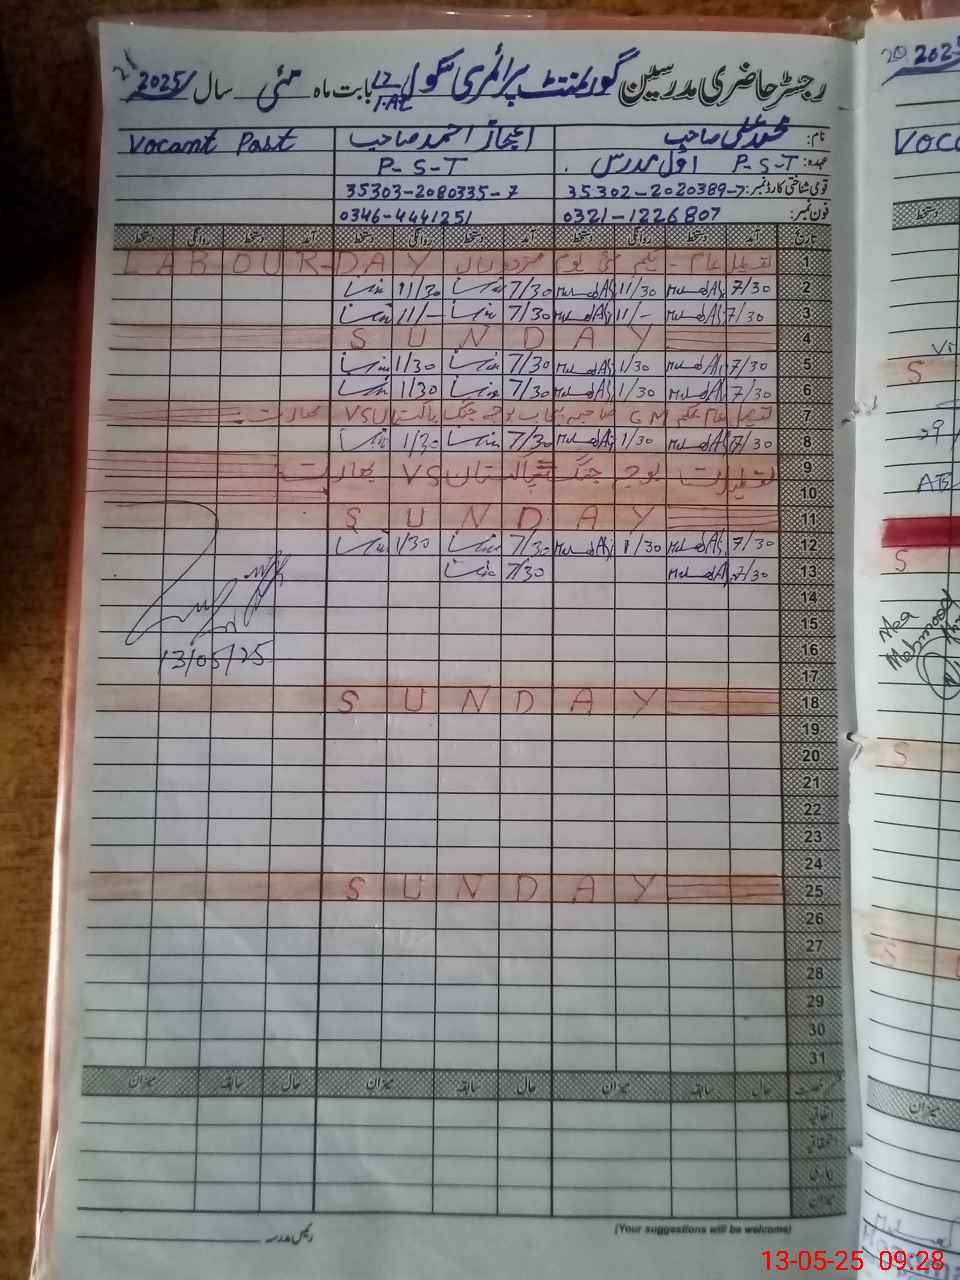 رجسٹر حاضری مدرسین گورنمنٹ پرائمری سکول 12/1.AL بابت ماہ مئی سال 2025/
نام: محمد علی صاحب اعجاز احمد صاحب Vocant Post
عہدہ: P-S-T اول مدرس P-S-T
قومی شناختی کارڈ نمبر: 35302-2020389-7 35303-2080335-7
فون نمبر: 0321-1226807 0346-4441251
تاریخ آمد دستخط روانگی دستخط آمد دستخط روانگی دستخط آمد دستخط روانگی دستخط
1 تعطیل عام - یکم مئی یوم مزدوراں LABOUR-DAY
2 7/30 11/30 7/30 11/30
3 7/30 11/- 7/30 11/-
4 SUNDAY
5 7/30 1/30 7/30 1/30
6 7/30 1/30 7/30 1/30
7 تعطیل عام بحکم CM صاحبہ پنجاب بوجہ جنگ پاکستان VS بھارت
8 7/30 1/30 7/30 1/30
9 تعطیلات بوجہ جنگ پاکستان VS بھارت
10
11 SUNDAY
12 7/30 1/30 7/30 1/30
13 7/30 7/30
14
15
16
13/05/25
17
18 SUNDAY
19
20
21
22
23
24
25 SUNDAY
26
27
28
29
30
31
رخصت حال سابقہ میزان حال سابقہ میزان حال سابقہ میزان
اتفاقیہ
استحقاقیہ
بیماری
میزان
(Your suggestions will be welcome)
رئیس مدرسہ
20 2025
VOCA
S
S
Mehmood
S
S
میزان
21
13-05-25 09:28